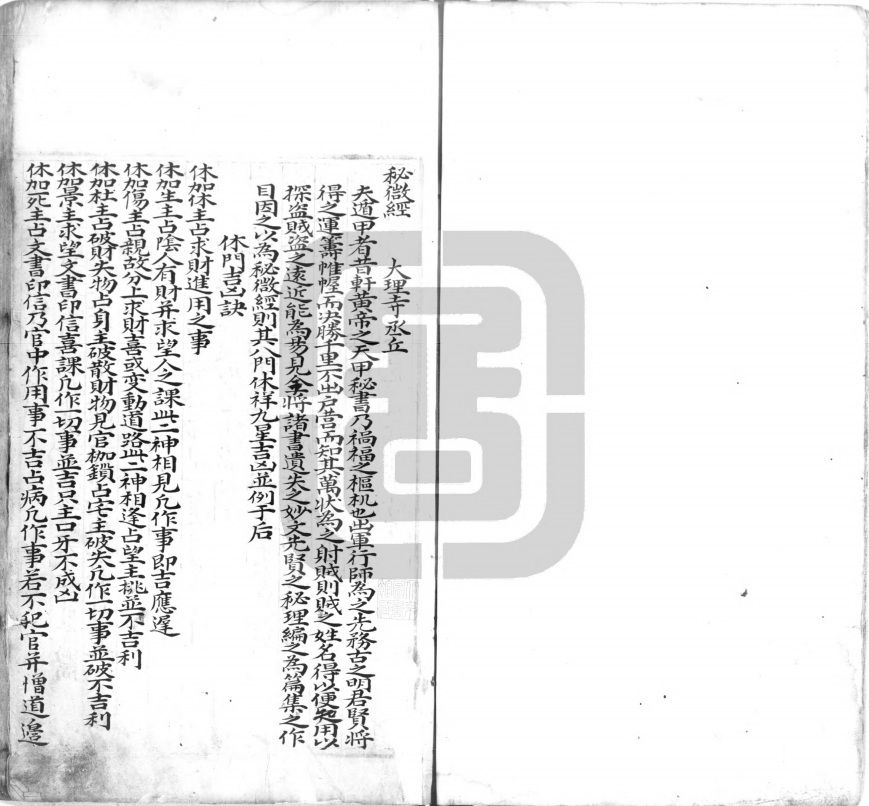 秘微經　大理寺丞丘
夫遁甲者昔軒黄帝之天甲秘書乃禍福之樞机也出軍行師為之先務古之明君賢將
得之運籌帷幄而决勝千里不出户营而知其萬状為之射賊則賊之姓名得以便知用以
探盗賊盗之遠近能為易見全將諸書遺失之妙文先賢之秘理編之為篇集之作
目因之以為秘微經則其八門休祥九星吉凶並例于后
休門吉凶訣
休加休主占求財進用之事
休加生主占陰人有財并求望人之課此二神相見凡作事即吉應遅
休加傷主占親故分上求財喜或变動道路此二神相逢占望主挑並不吉利
休加杜主占破財失物占身主破散財物見官枷鎖占宅主破失凡作一切事並破不吉利
休加景主求望文書印信喜課凡作一切事並吉只主口牙不成凶
休加死主占文書印信乃官中作用事不吉占病凡作事若不犯官并憎道邊